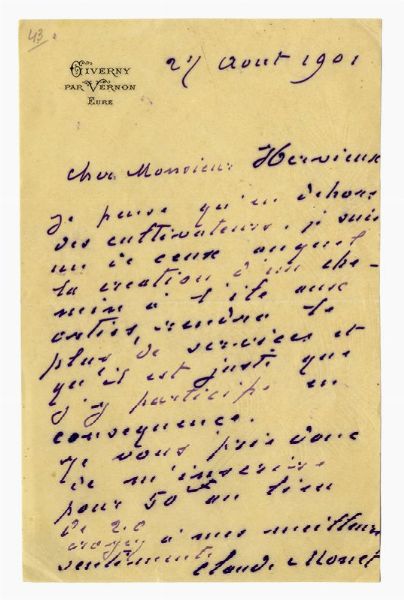 43.
GIVERNY
PAR VERNON
EURE
27 Aout 1901
cher Monsieur Hervieux
Je pense qu'en dehors
des cultivateurs, je suis
un de ceux auquel
la creation d'un che-
min à l'ile aux
orties, rendra le
plus de services et
qu'il est juste que
j'y participe en
consequence.
Je vous prie donc
de m'inscrire
pour 50f au lieu
de 20
croyez à mes meilleurs
sentiments
Claude Monet